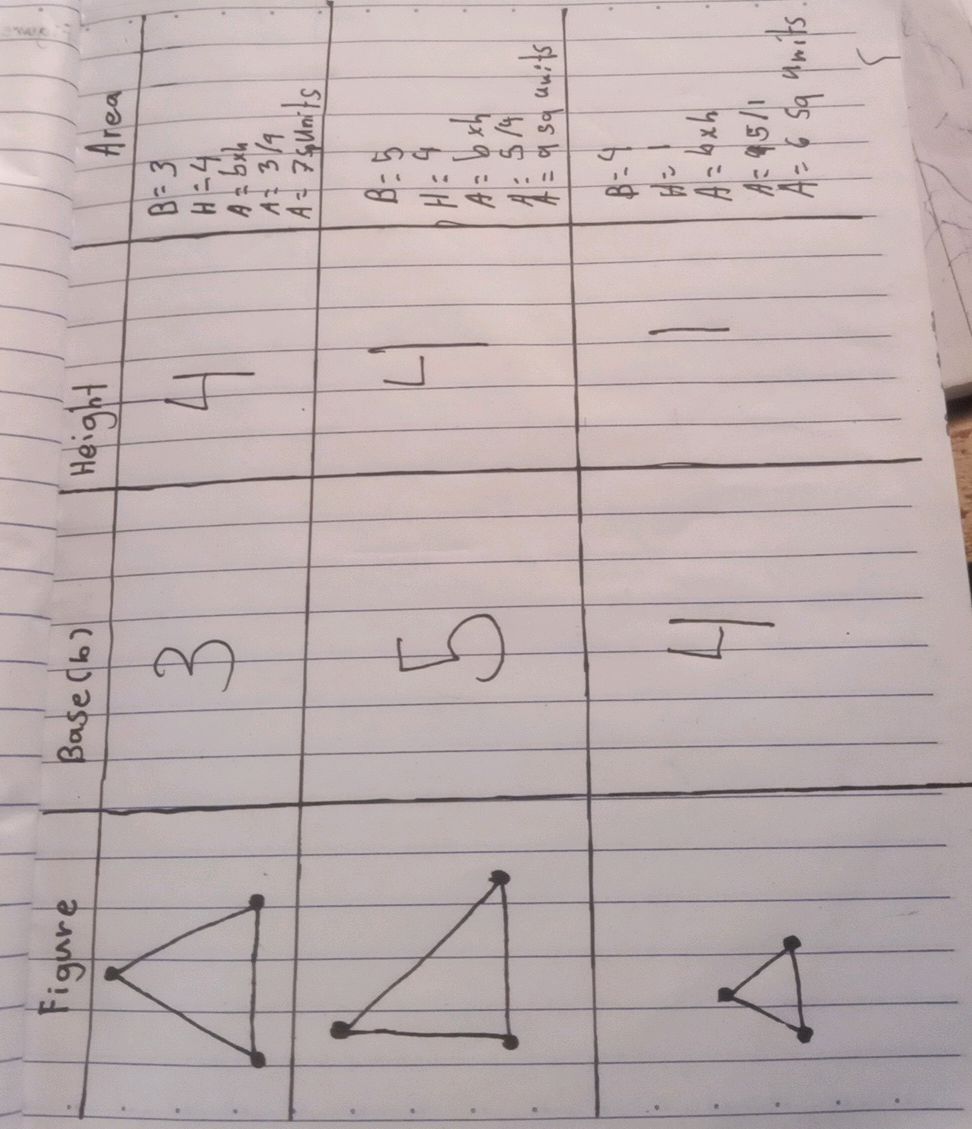 Figure Base(b) Height Area
3 4 B=3
H=4
A=bxh
A=3/4
A=7sqUnits
5 4 B=5
H=4
A=bxh
A=5/4
A=9 sq units
4 1 B=4
H=1
A=bxh
A=5/1
A=6 sq units